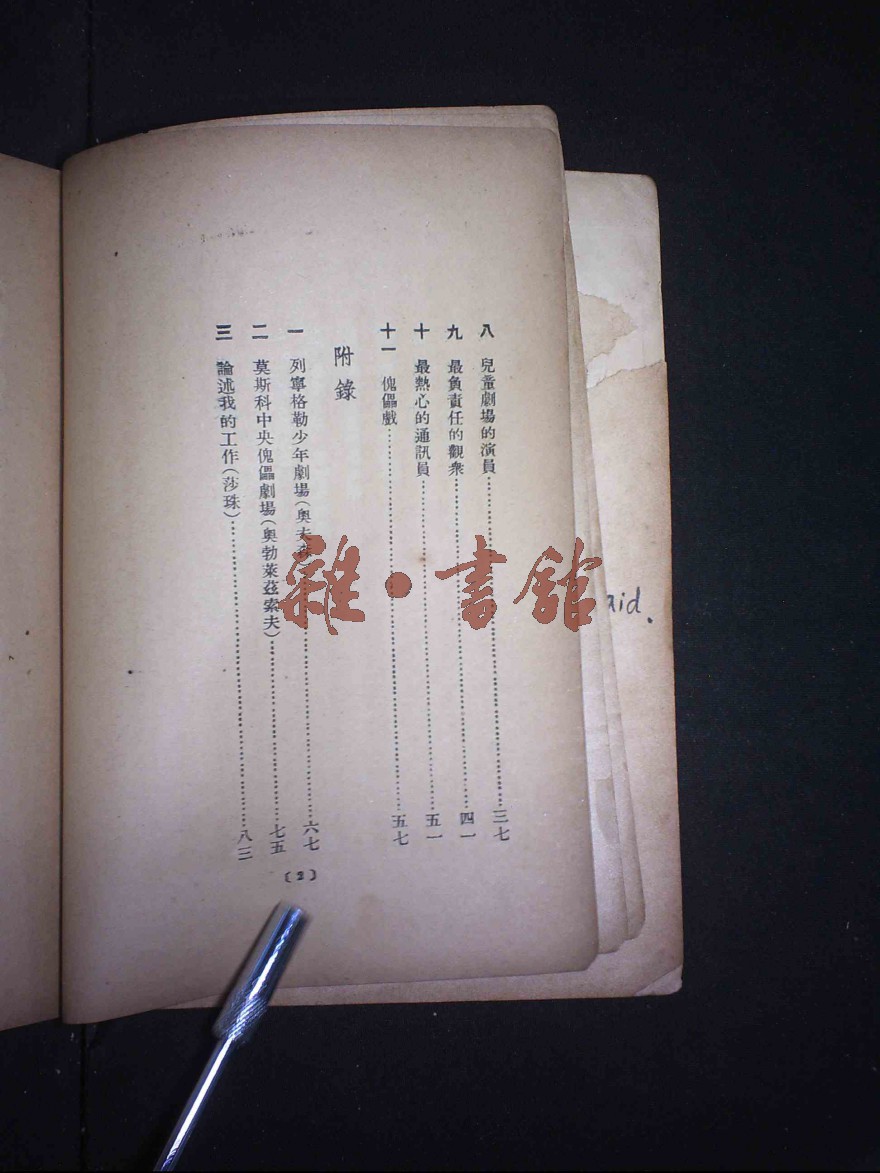 八 兒童劇場的演員……三七
九 最負責任的觀衆……四一
十 最熱心的通訊員……五一
十一 傀儡戲……五七
附錄
一 列寧格勒少年劇場(奧夫……六七
二 莫斯科中央傀儡劇場(奧勃萊茲索夫)……七五
三 論述我的工作(莎珠)……八三
(2)
雜·書館
aid.